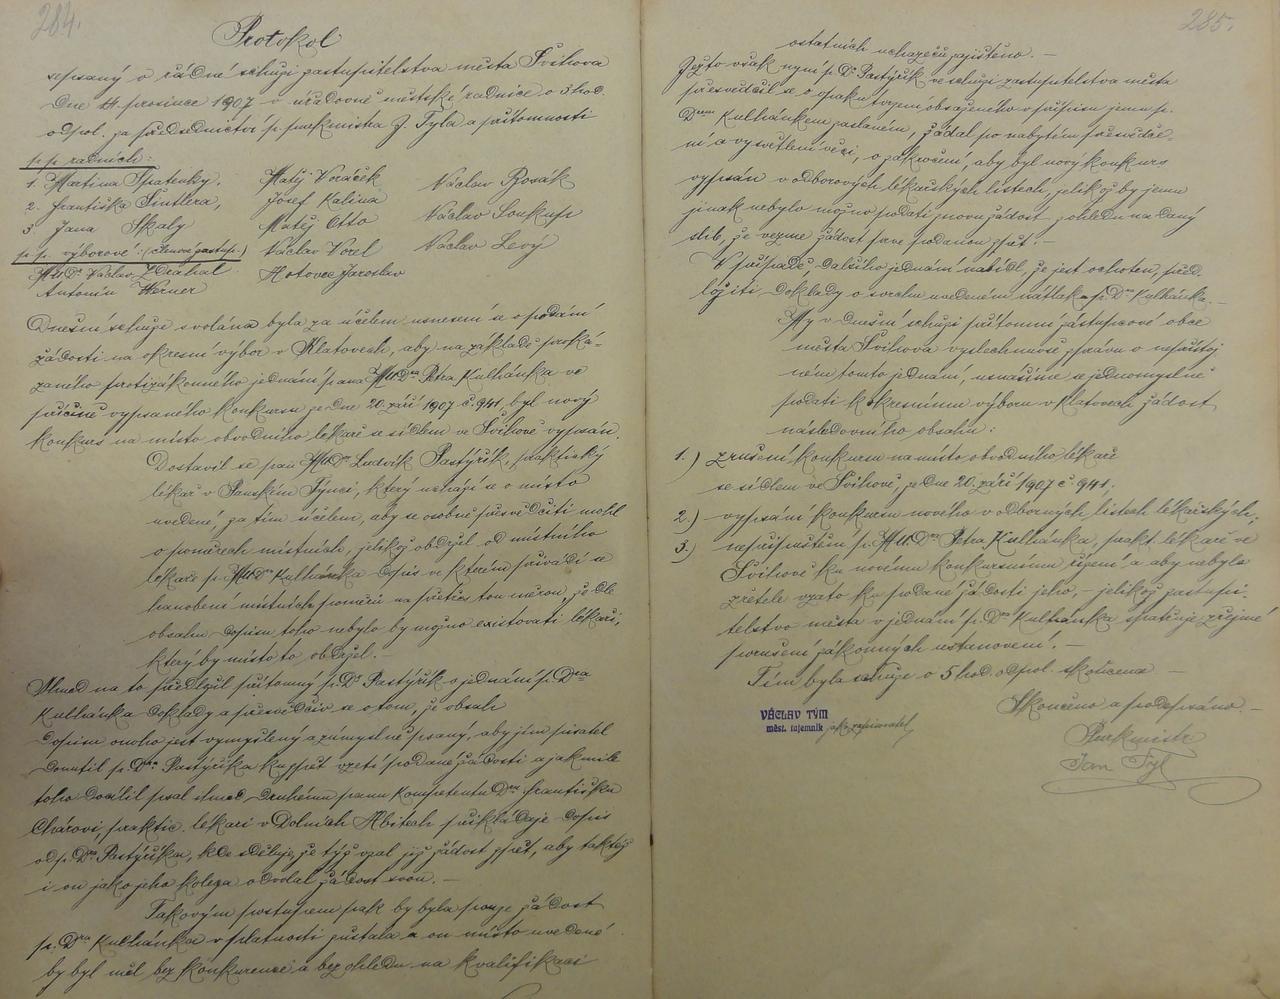 284.
Protokol
sepsaný o řádné schůzi zastupitelstva města Švihova
dne 4. prosince 1907 v úřadovně městské radnice o 3 hod.
odpol. za předsednictví p. purkmistra J. Tyla a přítomnosti
p. p. radních:
1. Martina Špatenky,
2. Františka Šintlera,
3. Jana Skaly
p. p. výborové: (členové zastup.)
MUDr. Václav Zdráhal
Antonín Werner
Matěj Voráček
Josef Kalina
Matěj Otto
Václav Vorel
Hotovec Jaroslav
Václav Bosák
Václav Soukup
Václav Levý
Dnešní schůze svolána byla za účelem usnesení se o podání
žádosti na okresní výbor v Klatovech, aby na základě proká-
zaného protizákonného jednání pana MUDra Petra Kulhánka ve
příčině vypsaného konkursu ze dne 20. září 1907 č. 941, byl nový
konkurs na místo obvodního lékaře se sídlem ve Švihově vypsán.
Dostavil se pan MUDr Ludvík Pastyřík, praktický
lékař v Panském Týnci, který uchází se o místo
uvedené, za tím účelem, aby se osobně přesvědčiti mohl
o poměrech místních, jelikož obdržel od místního
lékaře p. MUDra Kulhánka dopis ve kterém přivádí se
hanobení místních poměrů na přetřes tou měrou, že dle
obsahu dopisu toho nebylo by možno existovati lékaři,
který by místo to obdržel. –
Ihned na to předložil přítomný p. Dr Pastyřík o jednání p. Dra
Kulhánka doklady a přesvědčiv se o tom, že obsah
dopisu onoho jest vymyšlený a zúmyslně psaný, aby jím pisatel
donutil p. Dra Pastyříka ku zpět vzetí podané žádosti a jakmile
toho docílil psal ihned druhému panu kompetentu Dru Františku
Chárovi, praktic. lékaři v Dolních Hbitech přikládaje dopis
od p. Dra Pastyříka, kde sděluje, že týž vzal již žádost zpět, aby taktéž
i on jako jeho kolega odvolal žádost svou. –
Takovým postupem pak by byla pouze žádost
p. Dra Kulhánka v platnosti zůstala a on místo uvedené
by byl měl bez konkurence a bez ohledu na kvalifikaci
285.
ostatních uchazečů zajištěno. –
Ježto však nyní p. Dr Pastyřík ve schůzi zastupitelstva města
přesvědčil se o opaku tvrzení obsaženého v přípisu jemu p.
Drem Kulhánkem zaslaném, žádal po nabytém přesvědče-
ní a vysvětlení věci, o zakročení, aby byl nový konkurs
vypsán v odborových lékařských listech, jelikož by jemu
jinak nebylo možno podati znovu žádost, pohledu na daný
slib, že vezme žádost prve podanou zpět. –
V případě dalšího jednání nabídl, že jest ochoten, před-
ložiti doklady o svrchu uvedeném nátlaku p. Dra Kulhánka. –
My v dnešní schůzi přítomní zástupcové obce
města Švihova vyslechnuvše zprávu o nepřístoj
ném tomto jednání, usnášíme se jednomyslně
podati k okresnímu výboru v Klatovech žádost
následovního obsahu:
1.) zrušení konkursu na místo obvodního lékaře
se sídlem ve Švihově, ze dne 20. září 1907 č. 941,
2.) vypsání konkursu nového v odborných listech lékařských,
3.) nepřipuštění p. MUDra Petra Kulhánka, prakt. lékaře ve
Švihově ku novému konkursnímu řízení a aby nebylo
zřetele vzato ku podané žádosti jeho, – jelikož zastupi-
telstvo města v jednání p. Dra Kulhánka spatřuje zřejmé
porušení zákonných ustanovení. –
Tím byla schůze o 5 hod. odpol. skončena –
Skončeno a podepsáno –
VÁCLAV TÝM
měst. tajemník jako zapisovatel,
Purkmistr
Jan Týl